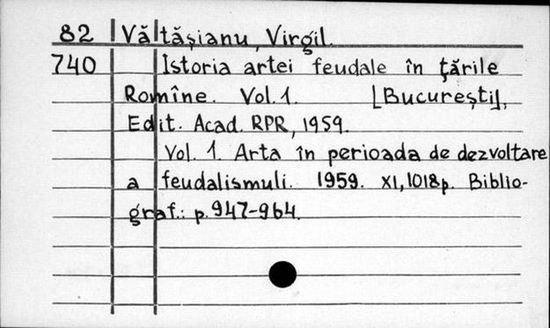 82 Vătăşianu, Virgil.
740 Istoria artei feudale în ţările
Romîne. Vol. 1. [Bucureşti],
Edit. Acad. RPR, 1959.
Vol. 1. Arta în perioada de dezvoltare
a feudalismuli. 1959. XI, 1018p. Biblio-
graf.: p. 947-964.